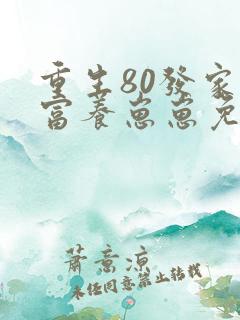 重生80發家
富養崽崽免
蕭意涼
未經同意禁止轉載